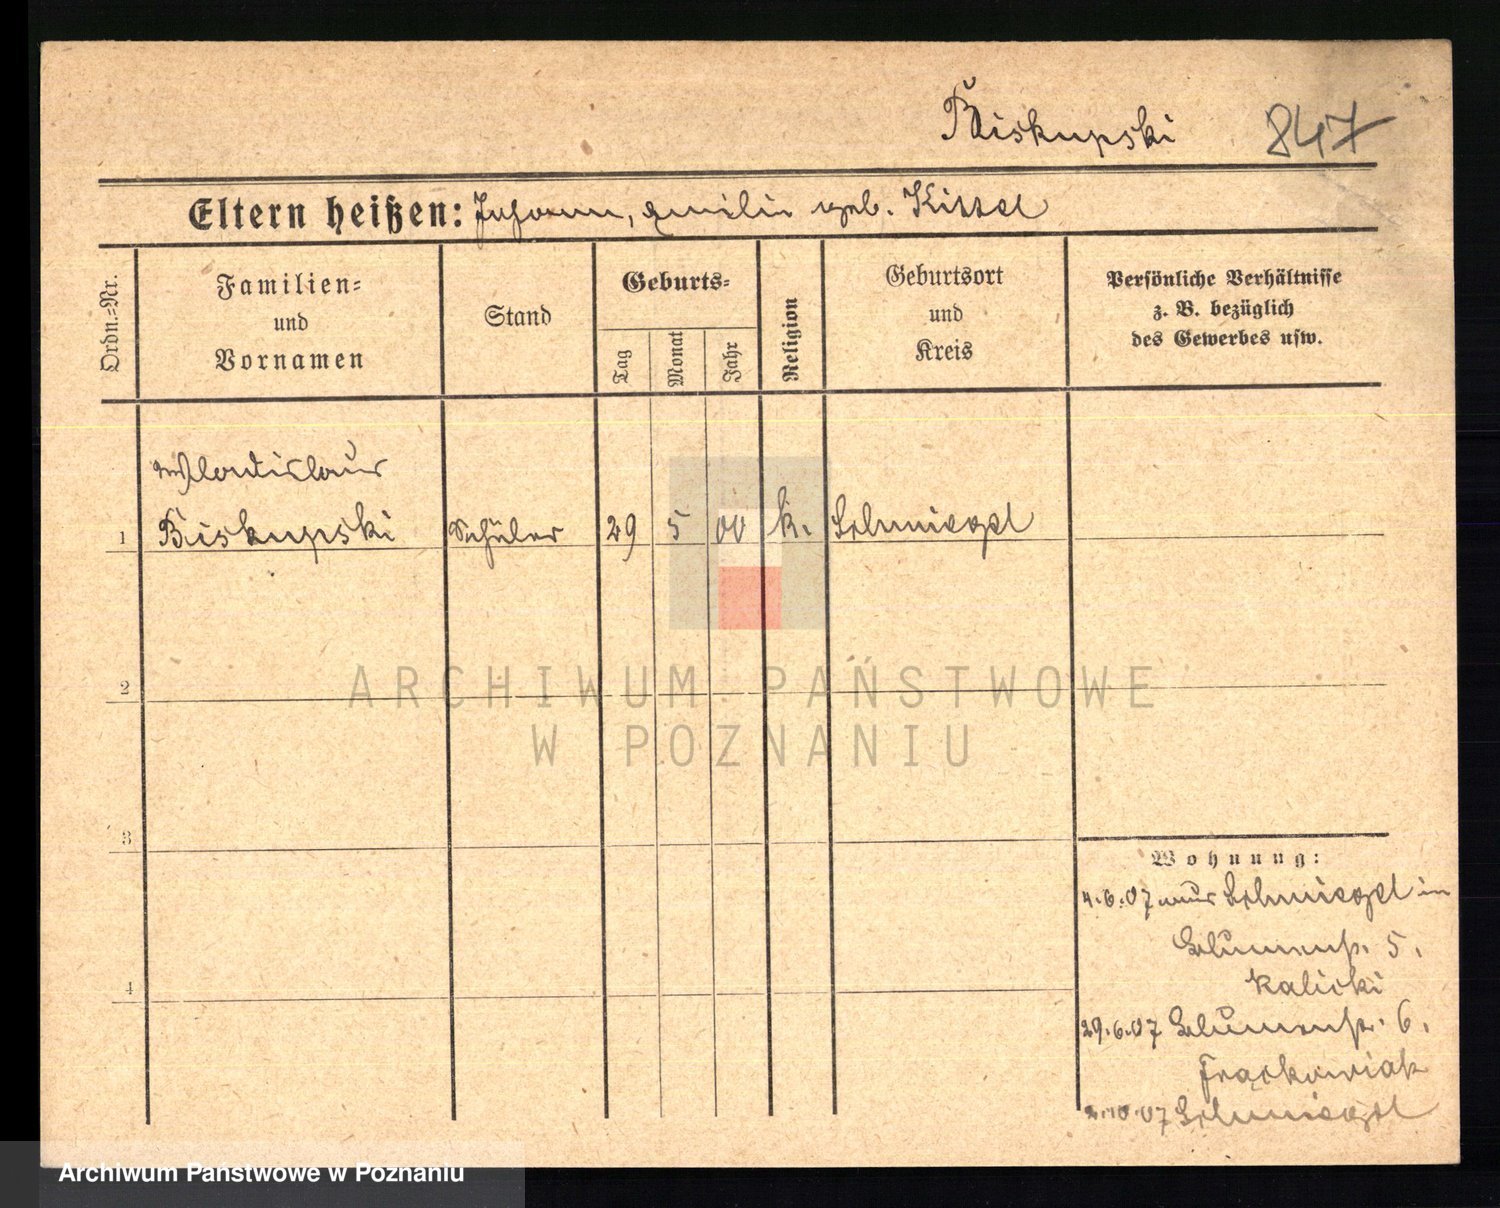 Biskupski 847
Eltern heißen: Johann, Emilie geb. Kissel
Ordn.=Nr.
Familien=
und
Vornamen
Stand
Geburts=
Tag
Monat
Jahr
Religion
Geburtsort
und
Kreis
Persönliche Verhältnisse
z. B. bezüglich
des Gewerbes usw.
Wladislaus
1 Biskupski Schüler 29 5 00 k. Schmiegel
2
3
4
Wohnung:
4.6.07 aus Schmiegel in
Blumenstr. 5.
Kalicki
29.6.07 Blumenstr. 6.
Frąckowiak
2.10.07 Schmiegel
ARCHIWUM PAŃSTWOWE
W POZNANIU
Archiwum Państwowe w Poznaniu